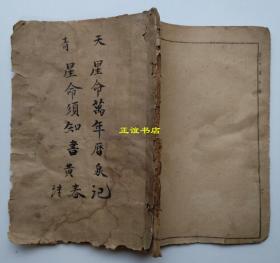 天星命萬年曆泉記
青星命須知書黄春
津
正谊书店